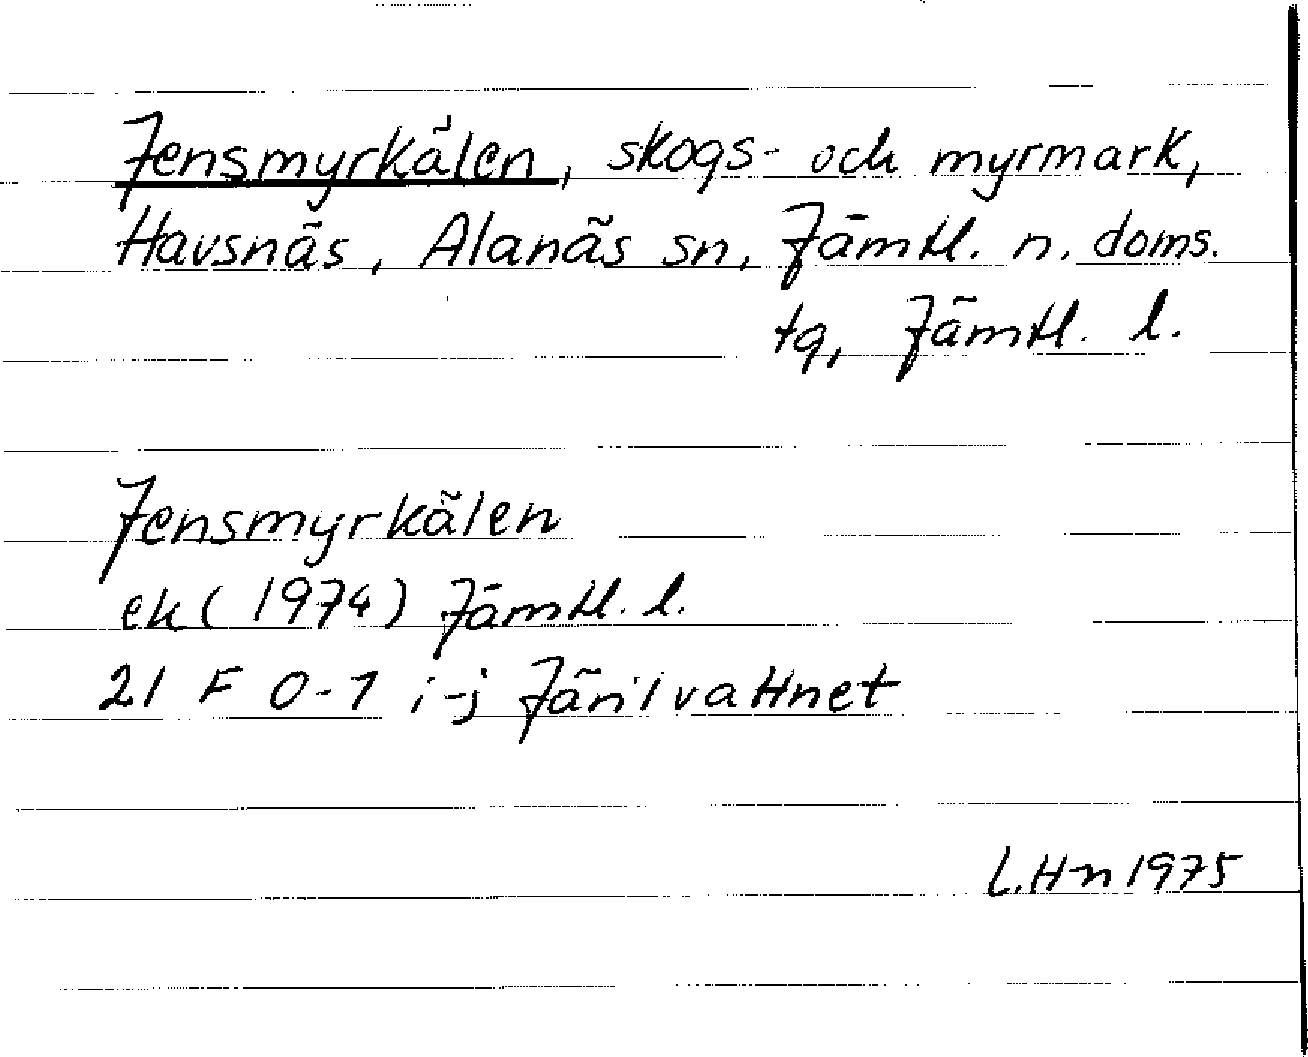 Jensmyrkälen, skogs- och myrmark,
Havsnäs, Alanäs sn, Jämtl. n. doms.
tg, Jämtl. l.
Jensmyrkälen
ek (1974) Jämtl. l.
21 F 0-1 i-j Järilvattnet
L.Hn 1975